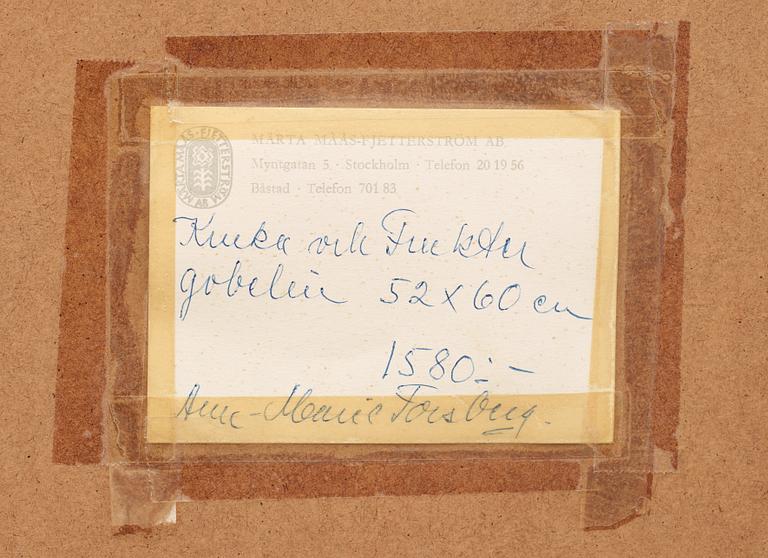 MÄRTA MÅÅS-FJETTERSTRÖM AB
MÄRTA MÅÅS-FJETTERSTRÖM AB
Myntgatan 5 · Stockholm · Telefon 20 19 56
Båstad · Telefon 701 83
Kruka och Frukter
gobelin 52 x 60 cm
1580:-
Ann-Marie Forsberg.